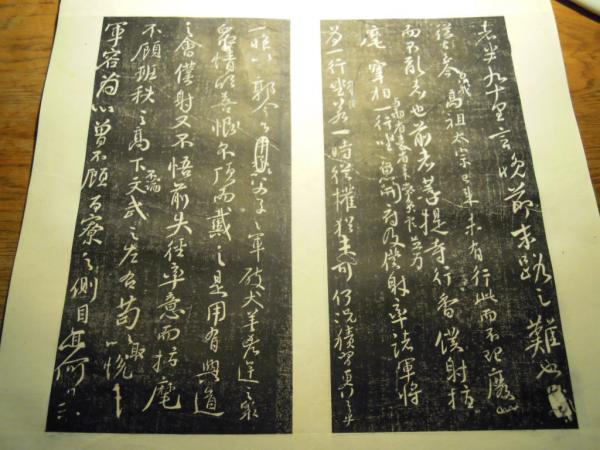 者半九十里言晚節末路之難也
從古至今暨我高祖太宗已來未有行此而不理廢此
而不亂者也前者菩提寺行香僕射指
麾宰相與兩省臺省已下常參官並為一行坐魚開府及僕射率諸軍將
為一行坐若一時從權猶未可何況積習更行之乎
一昨以郭令公以父子之軍破犬羊凶逆之眾
眾情欣喜恨不頂而戴之是用有興道
之會僕射又不悟前失徑率意而指麾
不顧班秩之高下不論文武之左右苟以取悅
軍容為心曾不顧百寮之側目亦何